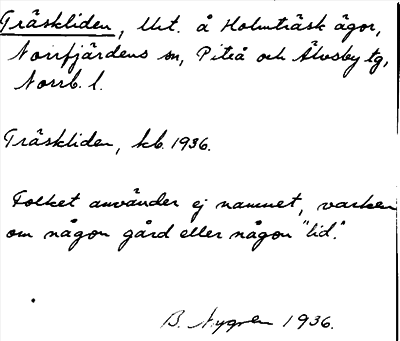 Träskliden, Urt. å Holmträsk ägor,
Norrfjärdens sn, Piteå och Älvsby tg,
Norrb. l.
Träskliden, kb. 1936.
Folket använder ej namnet, varken
om någon gård eller någon "lid".
B. Nygren 1936.